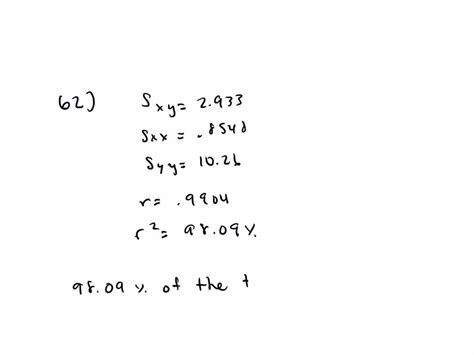 62) Sxy = 2.933
Sxx = .8548
Syy = 10.26
r = .9904
r² = 98.09 %.
98.09 % of the t